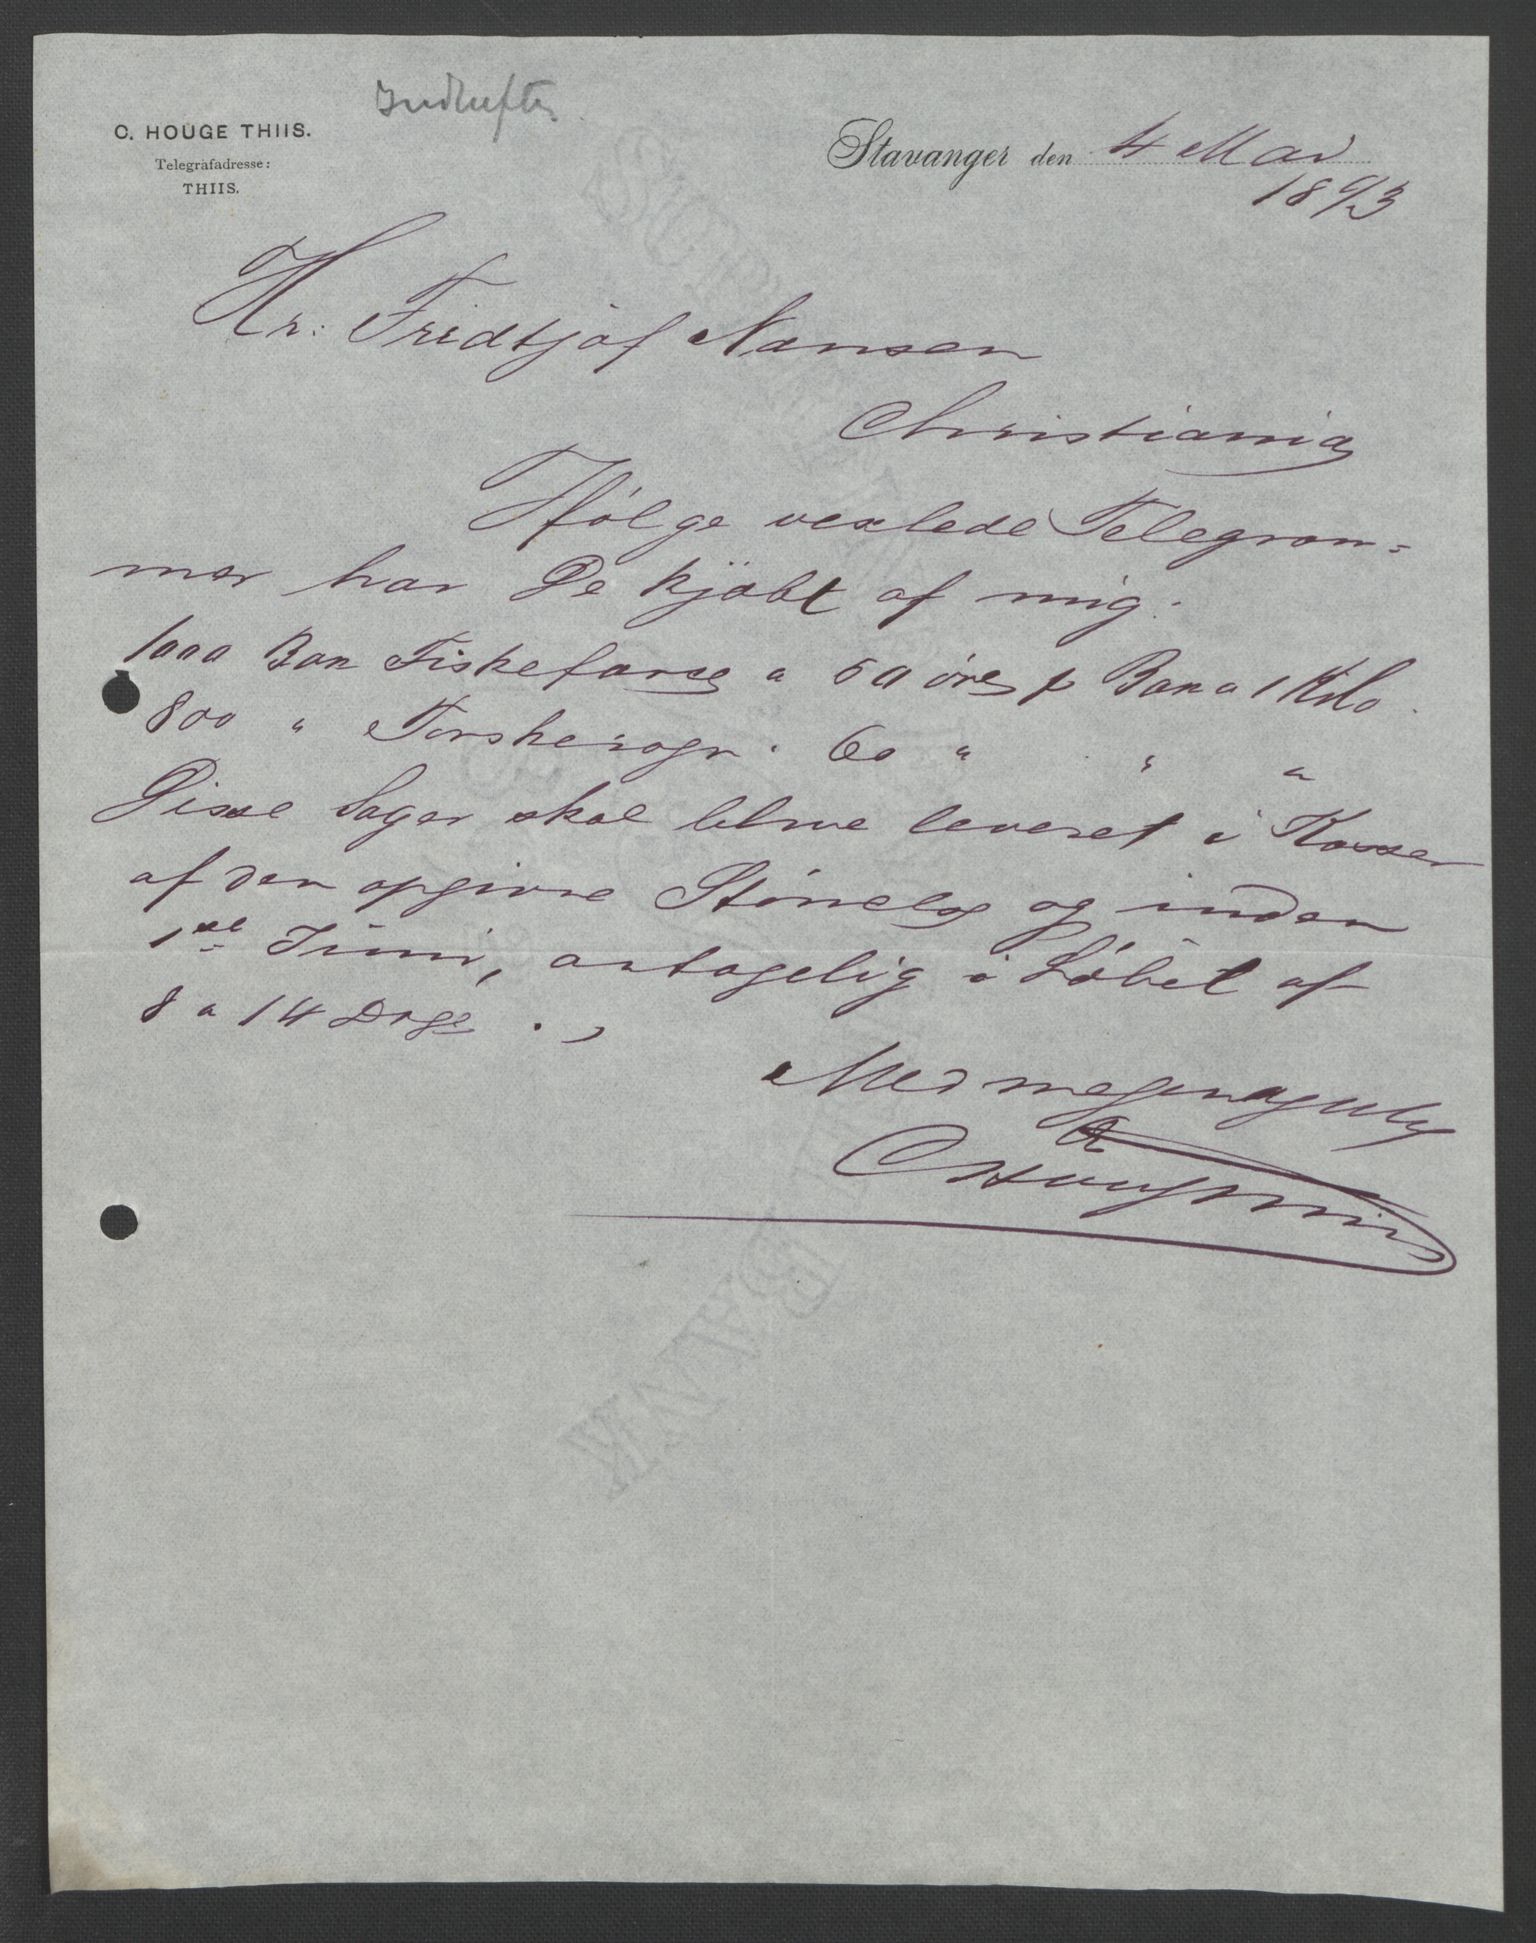 Indheftes
C. HOUGE THIIS.
Telegrafadresse:
THIIS.
Stavanger den 4 Mai
1893
Hr: Fridtjof Nansen
Christiania
Ifølge vexlede Telegram=
mer har De kjøbt af mig:
1000 Box Fiskefarce a 50 øre p Box a 1 Kilo.
800 " Torskerogn " 60 " " "
Disse Sager skal blive leveret i Kasser
af den opgivne Størrelse og inden
1ste Juni, antagelig i Løbet af
8 a 14 Dage.
Med megen Agtelse
C Houge Thiis
BANK